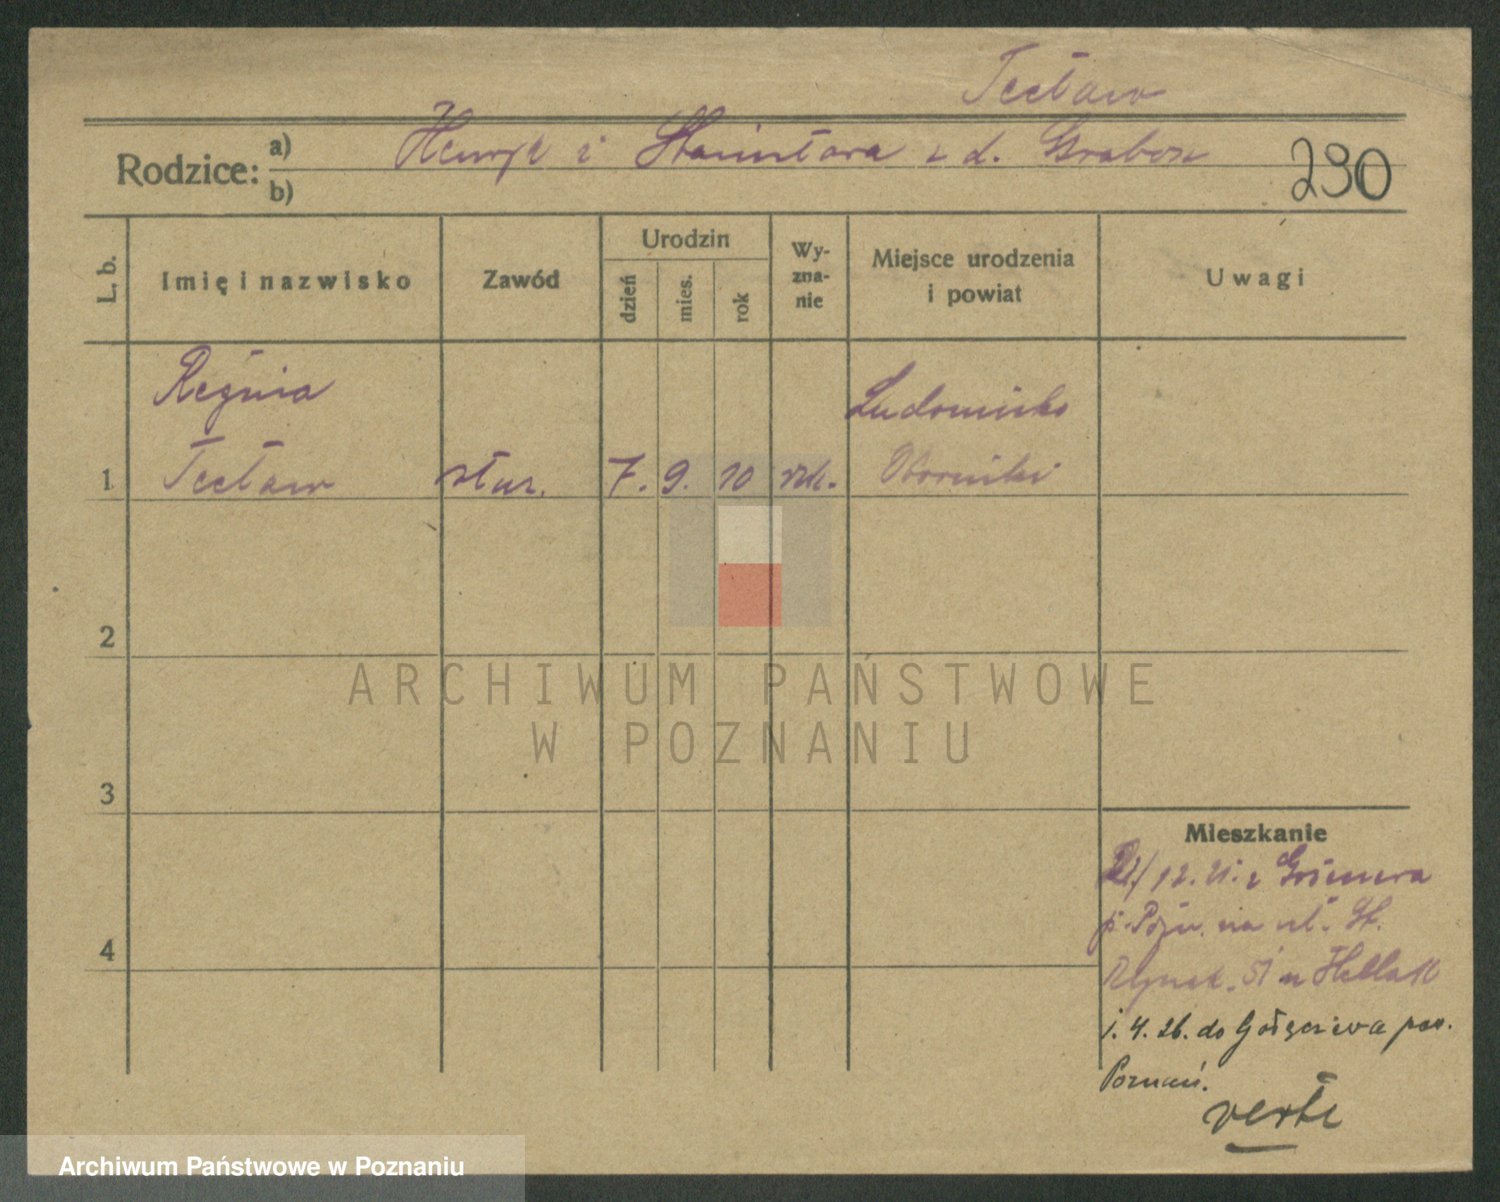 Tecław
Rodzice: a) Henryk i Stanisława z d. Grabon
b)
230
L. b.
Imię i nazwisko
Zawód
Urodzin
dzień
mies.
rok
Wy-
zna-
nie
Miejsce urodzenia
i powiat
Uwagi
Regina
Ludomicko
1 Tecław służ. 7. 9. 10 rzk. Oborniki
2
3
4
Mieszkanie
12. 21. z
p. Pozn. na ul. St.
Rynek. 51 u
1. 4. 26. do Gołęczewa pow.
Poznań.
verte
ARCHIWUM PAŃSTWOWE
W POZNANIU
Archiwum Państwowe w Poznaniu